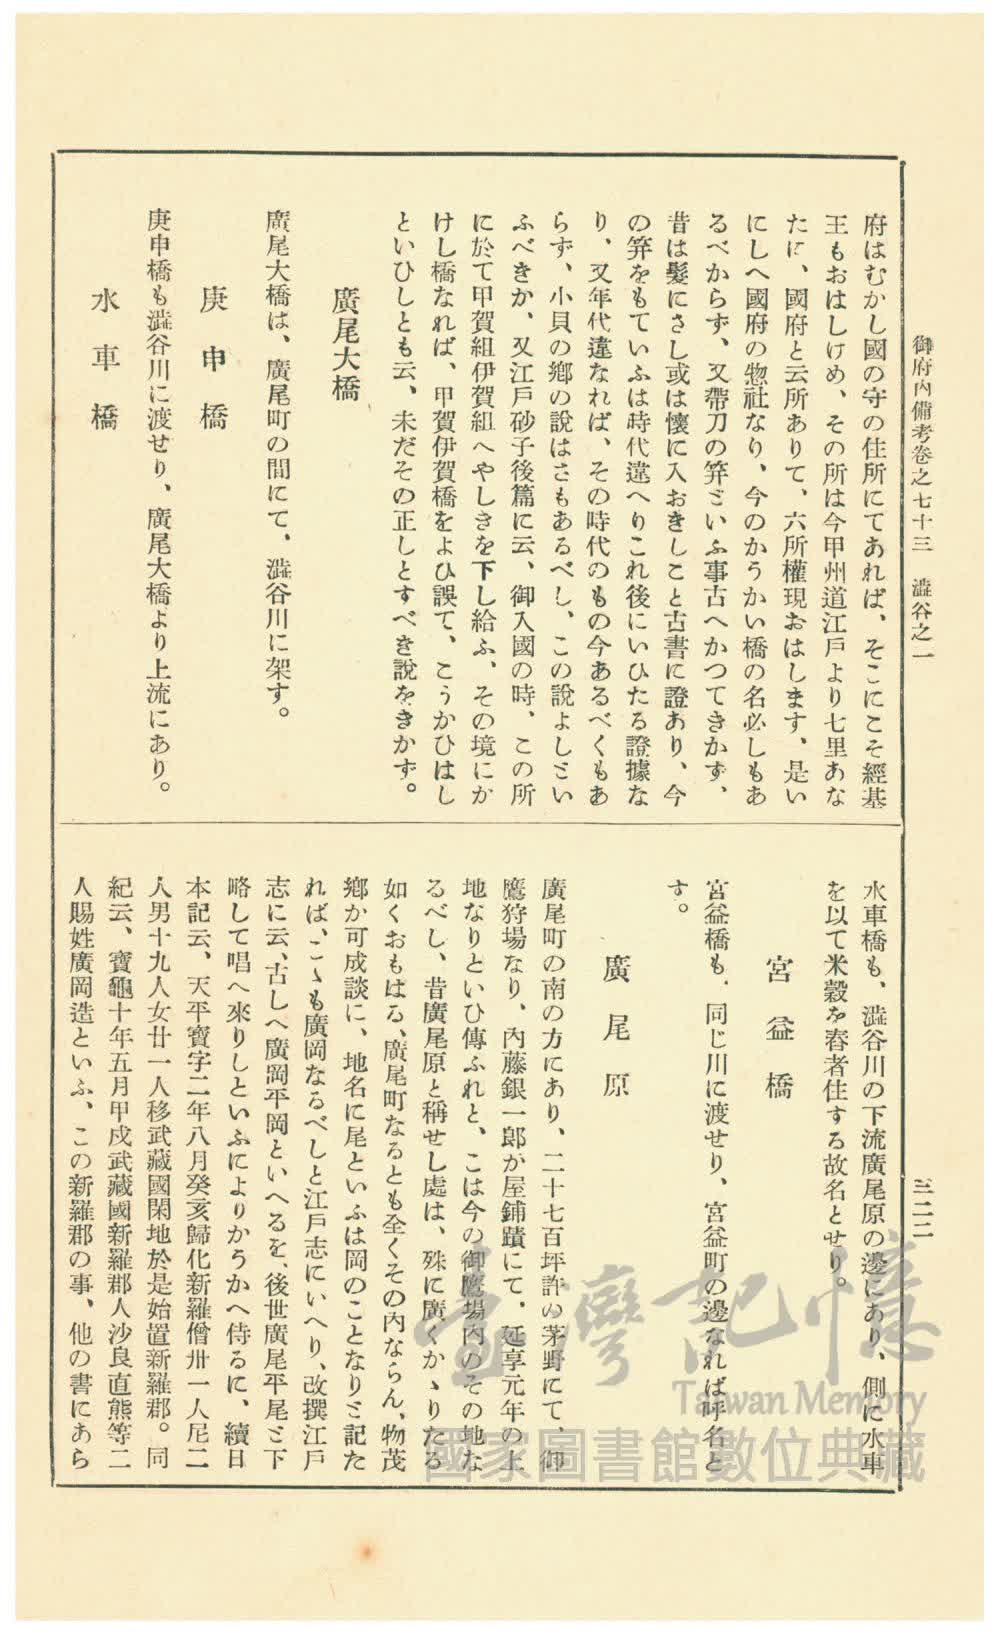 御府內備考卷之七十三　澁谷之一
三二二
府はむかし國の守の住所にてあれば、そこにこそ經基
王もおはしけめ、その所は今甲州道江戶より七里あな
たに、國府と云所ありて、六所權現おはします、是い
にしへ國府の惣社なり、今のかうかい橋の名必しもあ
るべからず、又帶刀の笄ざいふ事古へかつてきかず、
昔は髮にさし或は懷に入おきしこと古書に證あり、今
の笄をもていふは時代違へりこれ後にいひたる證據な
り、又年代違なれば、その時代のもの今あるべくもあ
らず、小貝の鄕の說はさもあるべし、この說よしとい
ふべきか、又江戶砂子後篇に云、御入國の時、この所
に於て甲賀組伊賀組へやしきを下し給ふ、その境にか
けし橋なれば、甲賀伊賀橋をよひ誤て、こうかひはし
といひしとも云、未だその正しとすべき說をきかず。
廣尾大橋
廣尾大橋は、廣尾町の間にて、澁谷川に架す。
庚申橋
庚申橋も澁谷川に渡せり、廣尾大橋より上流にあり。
水車橋
水車橋も、澁谷川の下流廣尾原の邊にあり、側に水車
を以て米穀を舂者住する故名とせり。
宮益橋
宮益橋も、同じ川に渡せり、宮益町の邊なれば呼名と
す。
廣尾原
廣尾町の南の方にあり、二十七百坪許の茅野にて、御
鷹狩場なり、內藤銀一郎が屋鋪蹟にて、延享元年の上
地なりといひ傳ふれと、こは今の御鷹場內のその地な
るべし、昔廣尾原と稱せし處は、殊に廣くかゝりたる
如くおもはる、廣尾町なるとも全くその內ならん、物茂
鄕か可成談に、地名に尾といふは岡のことなりと記た
れば、こゝも廣岡なるべしと江戶志にいへり、改撰江戶
志に云、古しへ廣岡平岡といへるを、後世廣尾平尾と下
略して唱へ來りしといふによりかうかへ侍るに、續日
本記云、天平寶字二年八月癸亥歸化新羅僧卅一人尼二
人男十九人女廿一人移武藏國閑地於是始置新羅郡。同
紀云、寶龜十年五月甲戌武藏國新羅郡人沙良直熊等二
人賜姓廣岡造といふ、この新羅郡の事、他の書にあら
臺灣記憶
Taiwan Memory
國家圖書館數位典藏